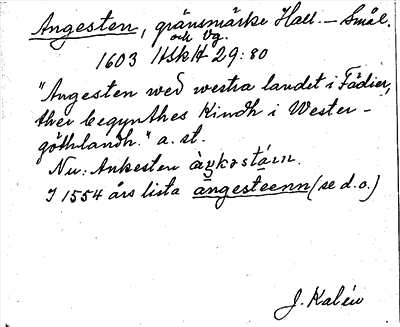 Angesten, gränsmärke Hall. – Smål.
och Vg.
1603 HSkH 29:80
"Angesten wed westra landet i Fädier,
ther begynthes Kindh i Wester-
göthlandh." a. st.
Nu: Ankesten àŋkəstá̄ɪn.
I 1554 års lista ängesteenn (se d.o.)
J. Kalén